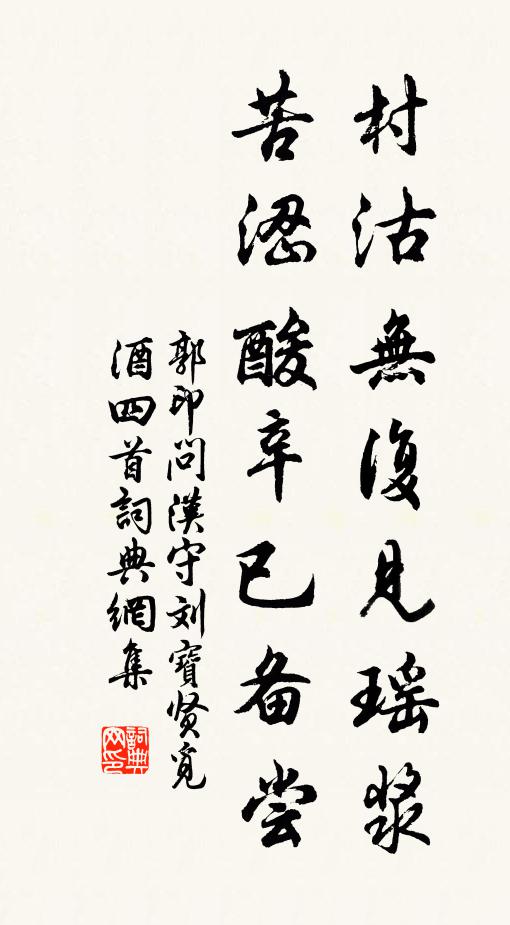 村沽無復見瑶漿
苦澀酸辛已备尝
郭印問漢守刘寶贤覓
酒四首詞典網集
詞典网印